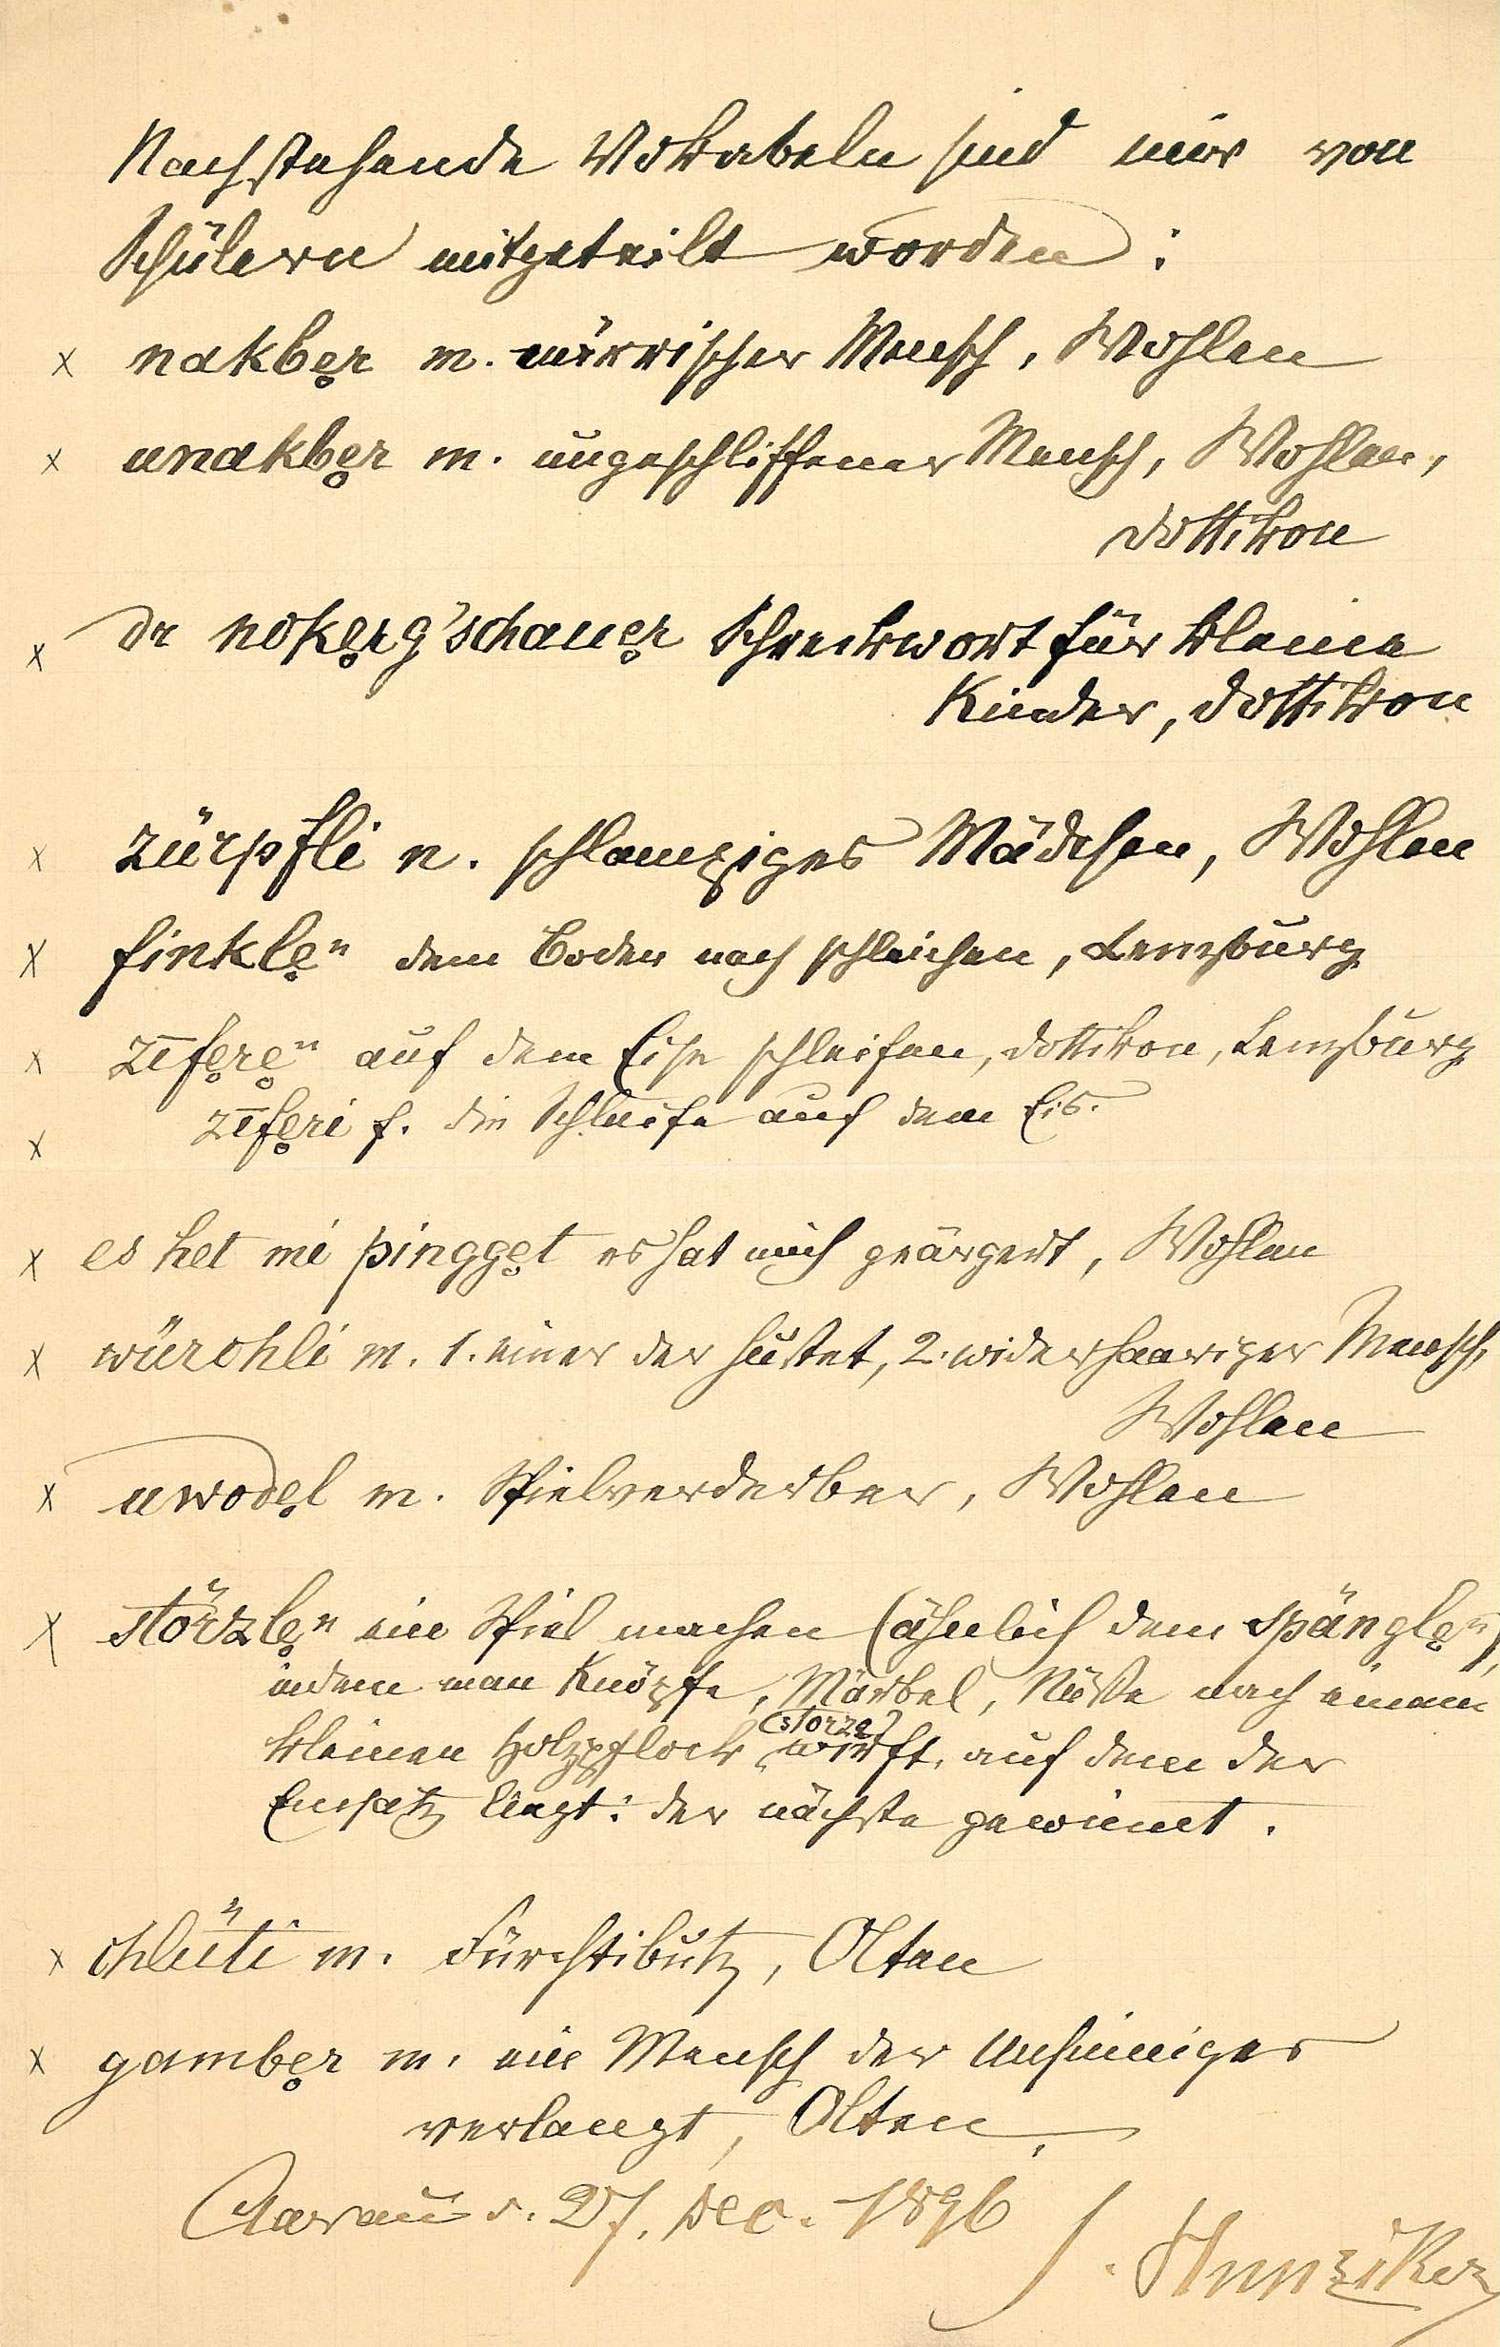 Nachstehende Vokabeln sind mir von
Schülern mitgeteilt worden:
x nakbe̥r m. närrischer Mensch, Wohlen
x unakbe̥r m. ungeschliffener Mensch, Wohlen,
Dottikon
x dr noke̥rg'schaue̥r Schreckwort für kleine
Kinder, Dottikon
x zürpfli n. schlampiges Mädchen, Wohlen
x finkle̥ⁿ dem Boden nach schleichen, Lenzburg
x zīfe̥re̥ⁿ auf dem Eise schleifen, Dottikon, Lenzburg
x zīfe̥ri f. die Schleife auf dem Eis.
x es het mi pingge̥t es hat mich geärgert, Wohlen
x würchli m. 1. einer der hustet, 2. widerhaariger Mensch,
Wohlen
x uwode̥l m. Spielverderber, Wohlen
x störzle̥ⁿ ein Spiel machen (ähnlich dem spängle̥ⁿ),
indem man Knöpfe, Märbel, Nüsse nach einem
kleinen Holzpflock (storze) wirft, auf dem der
Einsatz liegt: der nächste gewinnt.
x chlüti m. Fürchtibutz, Olten
x gambe̥r m. ein Mensch der Unsinniges
verlangt, Olten.
Aarau d. 27. Dec. 1896
J. Hunziker